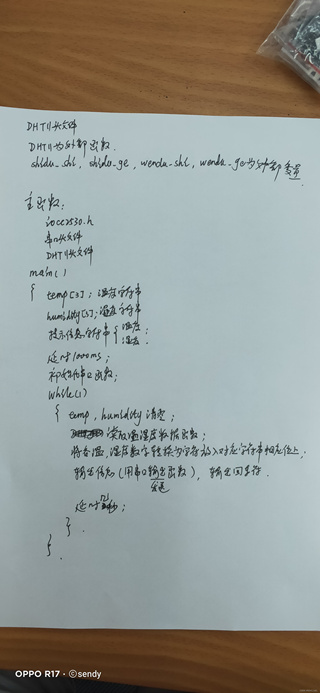 DHT11头文件
DHT11为外部函数.
shidu_shi, shidu_ge, wendu_shi, wendu_ge为外部变量.
主函数:
iocc2530.h
串口头文件
DHT11头文件
main()
{ temp[3]; 温度字符串
humidity[3]; 湿度字符串
提示信息字符串 { 温度;
湿度.
延时1000ms;
初始化串口函数;
while(1)
{ temp, humidity 清空;
读取温湿度数据函数;
将各温、湿度数字转换为字符放入对应字符串相应位上;
输出信息(用串口输出函数), 输出回车符.
发送
延时 ;
} .
} .
OPPO R17 · ©sendy